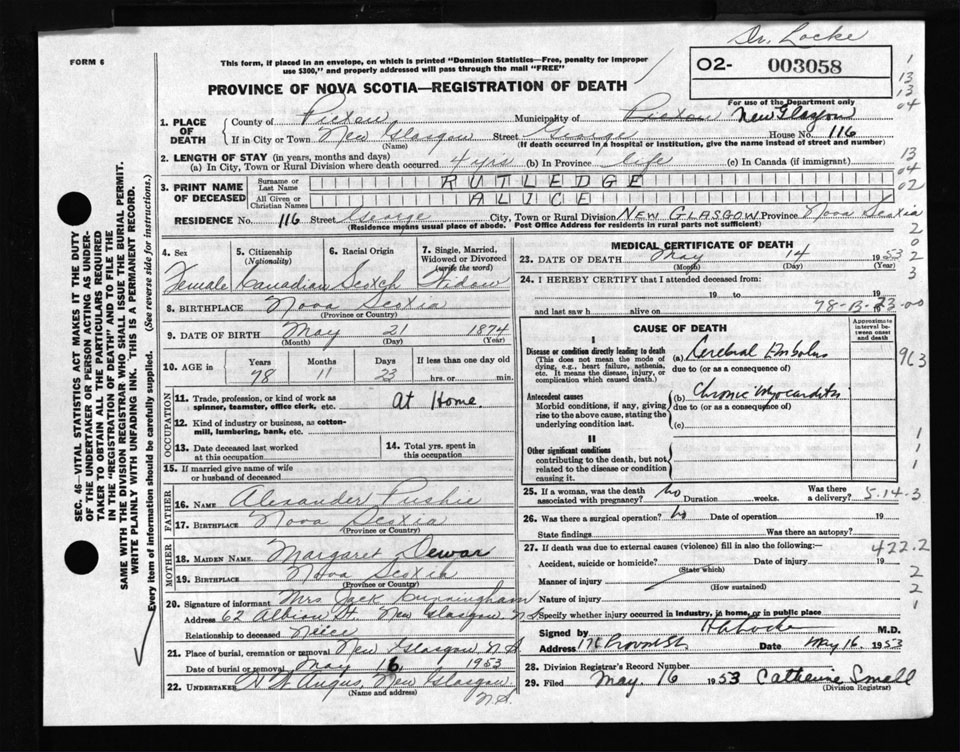 Dr. Locke
FORM 6
This form, if placed in an envelope, on which is printed "Dominion Statistics—Free, penalty for improper
use $300," and properly addressed will pass through the mail "FREE"
02- 003058
PROVINCE OF NOVA SCOTIA—REGISTRATION OF DEATH
For use of the Department only
1. PLACE OF DEATH County of Pictou Municipality of Pictou New Glasgow
If in City or Town New Glasgow Street George House No. 116
(Name) (If death occurred in a hospital or institution, give the name instead of street and number)
2. LENGTH OF STAY (in years, months and days)
(a) In City, Town or Rural Division where death occurred 4 yrs (b) In Province life (c) In Canada (if immigrant)
3. PRINT NAME OF DECEASED Surname or Last Name RUTLEDGE
All Given or Christian Names ALICE
RESIDENCE No. 116 Street George City, Town or Rural Division NEW GLASGOW Province Nova Scotia
(Residence means usual place of abode. Post Office Address for residents in rural parts not sufficient)
4. Sex Female
5. Citizenship (Nationality) Canadian
6. Racial Origin Scotch
7. Single, Married, Widowed or Divorced (write the word) Widow
8. BIRTHPLACE Nova Scotia
(Province or Country)
9. DATE OF BIRTH May 21 1874
(Month) (Day) (Year)
10. AGE in Years Months Days If less than one day old
78 11 23 hrs. or min.
OCCUPATION
11. Trade, profession, or kind of work as spinner, teamster, office clerk, etc. At Home.
12. Kind of industry or business, as cotton-mill, lumbering, bank, etc.
13. Date deceased last worked at this occupation
14. Total yrs. spent in this occupation
15. If married give name of wife or husband of deceased
FATHER
16. NAME Alexander
17. BIRTHPLACE Nova Scotia
(Province or Country)
MOTHER
18. MAIDEN NAME Margaret Dewar
19. BIRTHPLACE Nova Scotia
(Province or Country)
20. Signature of informant Mrs Jack Cunningham
Address 62 Albion St. New Glasgow NS
Relationship to deceased Neice
21. Place of burial, cremation or removal New Glasgow, N.S
Date of burial or removal May 16 1953
22. UNDERTAKER Angus, New Glasgow
(Name and address) N.S.
MEDICAL CERTIFICATE OF DEATH
23. DATE OF DEATH May 14 1953
(Month) (Day) (Year)
24. I HEREBY CERTIFY that I attended deceased from:
19 to 19
and last saw h alive on 19
CAUSE OF DEATH
Approximate interval between onset and death
I
Disease or condition directly leading to death
(This does not mean the mode of dying, e.g., heart failure, asthenia, etc. It means the disease, injury, or complication which caused death.)
(a) Cerebral Embolus
due to (or as a consequence of)
Antecedent causes
Morbid conditions, if any, giving rise to the above cause, stating the underlying condition last.
(b) Chronic Myocarditis
due to (or as a consequence of)
(c)
II
Other significant conditions
contributing to the death, but not related to the disease or condition causing it.
25. If a woman, was the death associated with pregnancy? No Duration weeks. Was there a delivery? 5-14-3
26. Was there a surgical operation? No Date of operation 19
State findings Was there an autopsy?
27. If death was due to external causes (violence) fill in also the following:— 422.2
Accident, suicide or homicide? Date of injury 19
(State which)
Manner of injury
(How sustained)
Specify whether injury occurred in industry, in home, or in public place
Signed by Locke M.D.
Address Provost St Date May 16 1953
28. Division Registrar's Record Number
29. Filed May 16 1953 Catherine Small
(Division Registrar)
SEC. 46—VITAL STATISTICS ACT MAKES IT THE DUTY
OF THE UNDERTAKER OR PERSON ACTING AS UNDER-
TAKER TO OBTAIN ALL THE PARTICULARS REQUIRED
IN THE "REGISTRATION OF DEATH" AND TO FILE THE
SAME WITH THE DIVISION REGISTRAR WHO SHALL ISSUE THE BURIAL PERMIT.
WRITE PLAINLY WITH UNFADING INK. THIS IS A PERMANENT RECORD.
Every item of information should be carefully supplied. (See reverse side for instructions.)